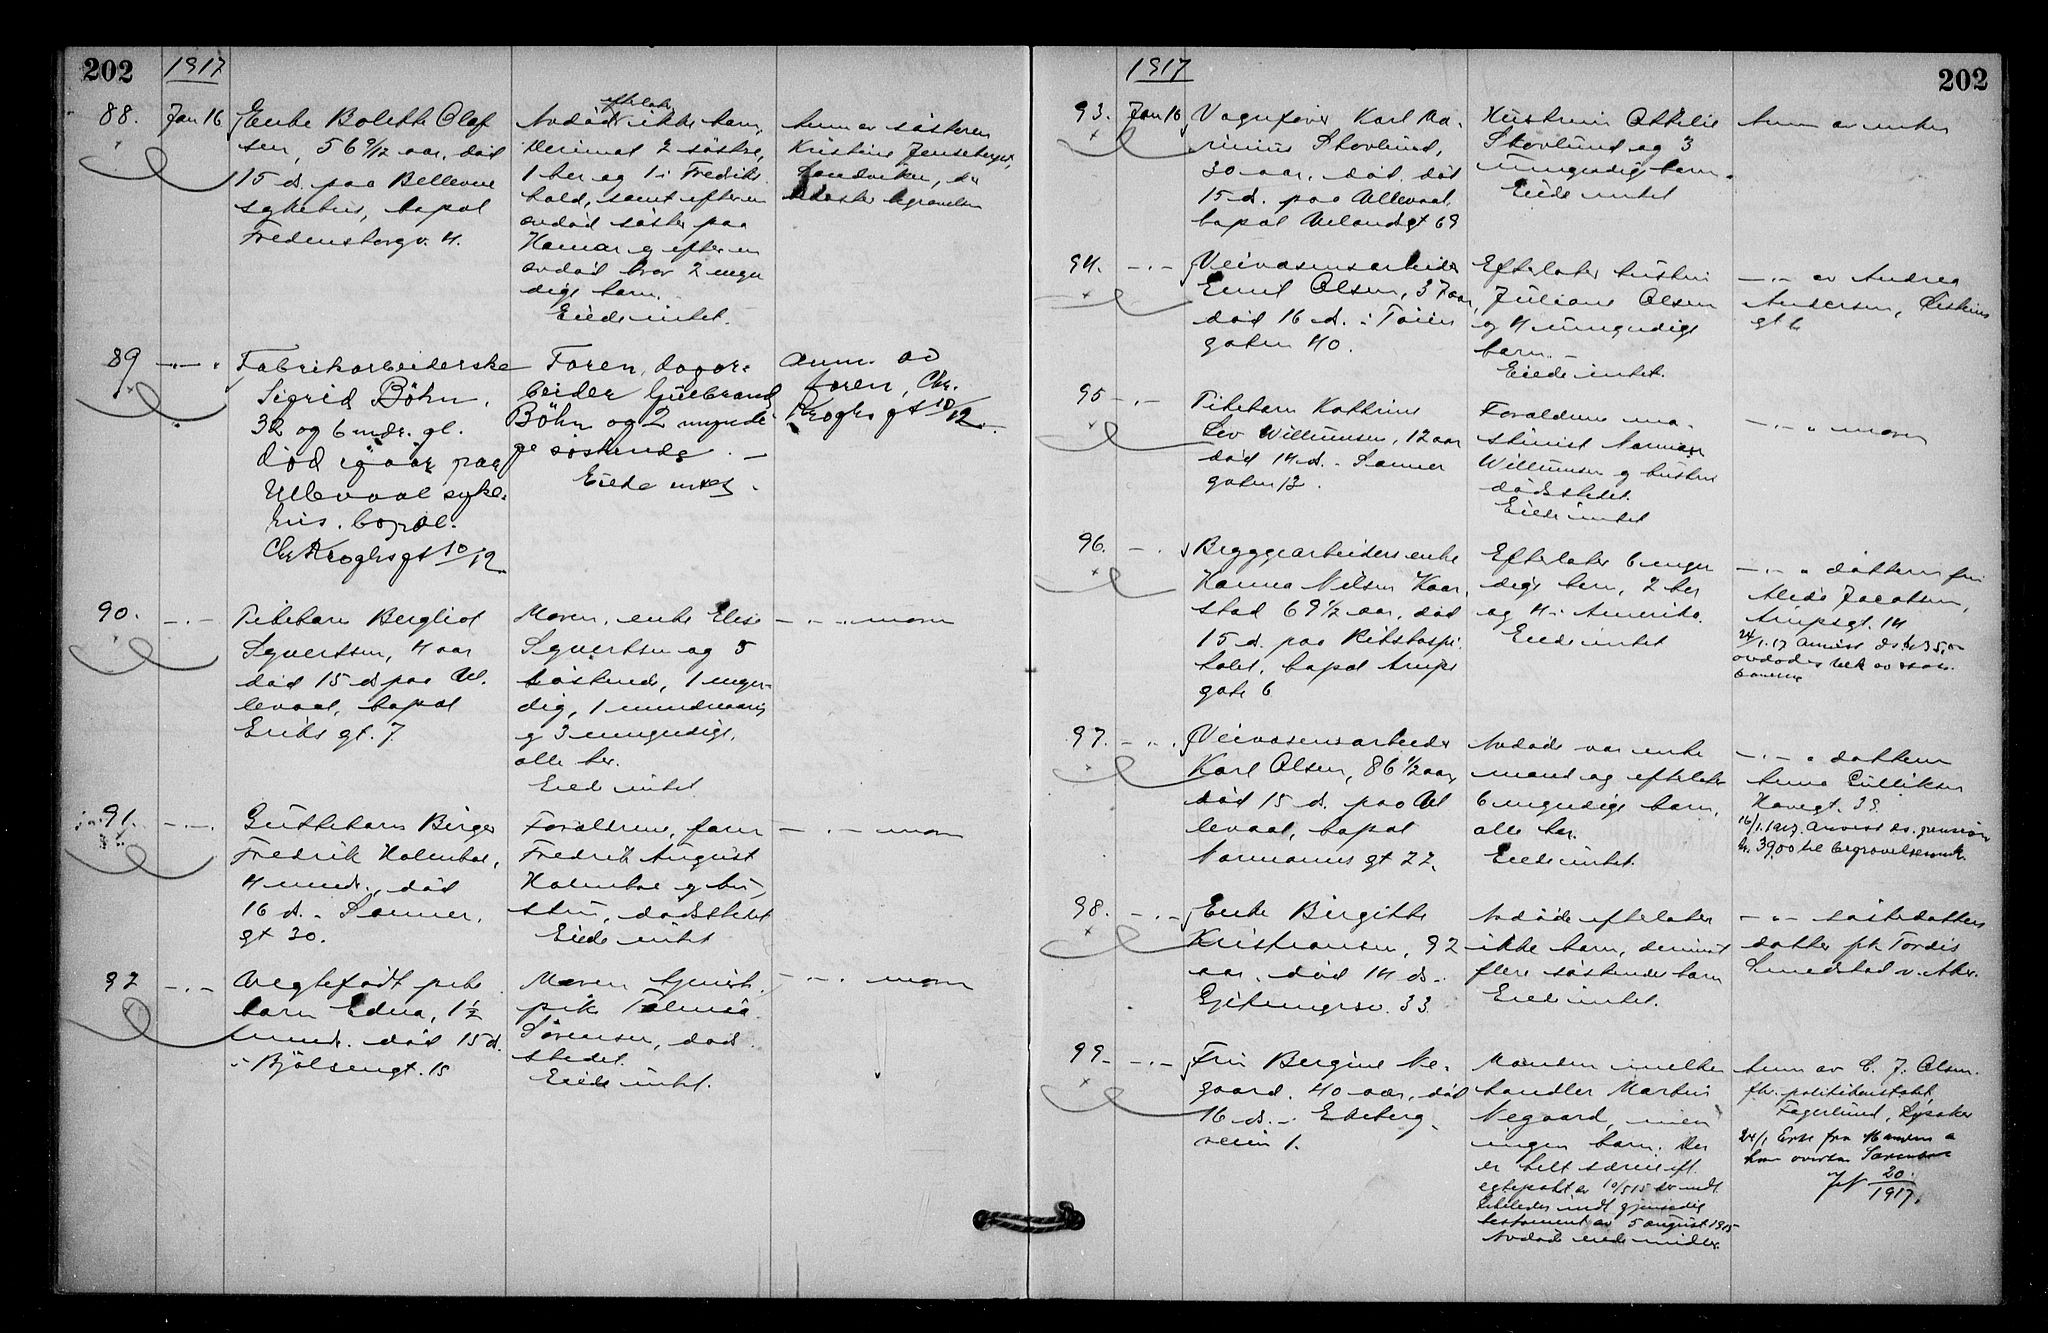 202
1917
88.
Jan 16
Enke Bolette Olaf
sen, 56 9/12 aar, død
15 ds. paa Bellevue
sykehus, bopæl
Fredensborgv. 4.
efterlater
Avdøde ikke barn,
derimot 2 søstre,
1 her og 1 i Fredriks
hald, samt efter en
avdød søster paa
Hamar og efter en
avdød bror 2 myn
dige barn.
Eiede intet.
Anm. av søsteren
Kristine
Sandviken, der
begravelsen
89
—„—
Fabrikarbeiderske
Sigrid Böhn,
32 og 6 mdr. gl.
død igaar paa
Ullevaal syke-
hus. bopæl.
Chr. Kroghsgt 10/12
Faren, dagar-
beider Gulbrand
Böhn og 2 myndi-
ge søskende. —
Eiede intet.
Anm. av
faren, Chr.
Kroghs gt 10/12.
90.
—„—
Pikebarn Bergliot
Syvertsen, 4 aar
død 15 ds paa Ul.
levaal, bopæl
Eriks gt. 7
Moren, enke Elise
Syvertsen og 5
søskende, 1 myn-
dig, 1 mindreaarig
og 3 umyndige,
alle her.
Eiede intet
—„— moren
91.
—„—
Guttebarn Birger
Fredrik Holmboe,
4 mndr., død
16 ds. i Sanner,
gt 30.
Forældrene, form
Fredrik August
Holmboe og hu-
stru, dødsstedet
Eiede intet
—„— moren
92
—„—
Uegtefødt pike
barn Edna, 1½
mndr. død 15 ds.
i Bjølsengt. 15
Moren tjeneste.
pike
Sørensen, døds
stedet.
Eiede intet.
—„— moren
1917
202
93.
Jan 16
Vognfører Karl Ma-
rinius Skovlund,
30 aar, død, død
15 ds. paa Ullevaal,
bopæl Uelandsgt 69
Hustruen Othilie
Skovlund og 3
umyndig barn.
Eiede intet
Anm av enken
94.
—„—
Veivæsensarbeider
Emil Olsen, 37 aar,
død 16 ds. i Tøien
gaten 40.
Efterlater hustru
Juliane Olsen
og 4 umyndige
barn. —
Eiede intet.
—„— av Andrea
Andersen,
gt 6
95
—„—
Pikebarn Kathrine
Willumsen, 12 aar
død 14 ds. i Sanner
gaten 12.
Forældrene ma-
skinist
Willumsen og hustru
dødsstedet.
Eiede intet
—„— moren
96.
—„—
Bryggearbeiders enke
Hanna Nilsen Kaar,
stad 69 1/2 aar, død
15 ds. paa Rikshospi
talet, bopæl Arups
gate 6
Efterlater 6 myn
dige barn, 2 her
og 4 i Amerika.
Eiede intet
—„— datteren fru
Alida Jacobsen,
Arupsgt. 14
24/1.17 Anvist ds. kr 35,00
avdødes
97.
—„—
Veivæsensarbeider
Karl Olsen, 86 1/2 aar,
død 15 ds. paa Ul
levaal, bopæl
Normanns gt 22.
Avdøde var enke
mand og efterlater
6 myndige barn,
alle her.
Eiede intet.
—„— datteren
Anna Gulliksen
Havegt. 39
16/1.1917. Anvist ds. pension
kr. 39,00 til begravelsesomk.
98.
—„—
Enke Birgitte
Kristiansen, 92
aar, død 14 ds. i
Gjetemyrsv. 33.
Avdøde efterlater
ikke barn, derimot
flere søskendebarn
Eiede intet.
—„— søsterdatters
datter frk Tordis
Smedstad v. Aker.
99.
—„—
Fru Bergine Ne-
gaard, 40 aar, død
16 ds. i Ekeberg-
veien 1.
Manden melke
handler Martin
Negaard, men
ingen barn. Der
er helt særeie efl.
egtepakt av
gjensidig
testament av 5 august 1915
Avdøde eiede midler.
Anm av C. J. Olsen
fhv. politibetjent,
Fagerlund, Lysaker
24/1 Erkl fra Manden a
han overtar
20
1917.